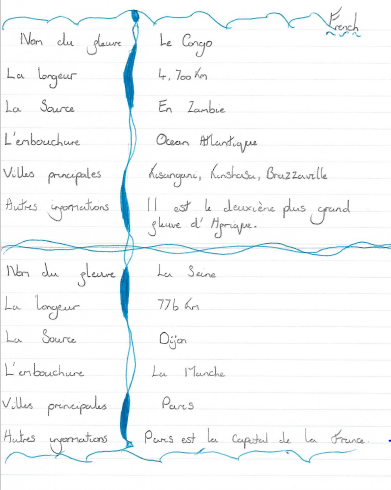 French
Nom du fleuve Le Congo
La longeur 4,700 Km
La Source En Zambie
L'embouchure Ocean Atlantique
Villes principales Kisangani, Kinshasa, Brazzaville
Autres informations Il est le deuxième plus grand
fleuve d'Afrique.
Nom du fleuve La Seine
La longeur 776 Km
La Source Dijon
L'embouchure La Manche
Villes principales Paris
Autres informations Paris est la capital de la France.